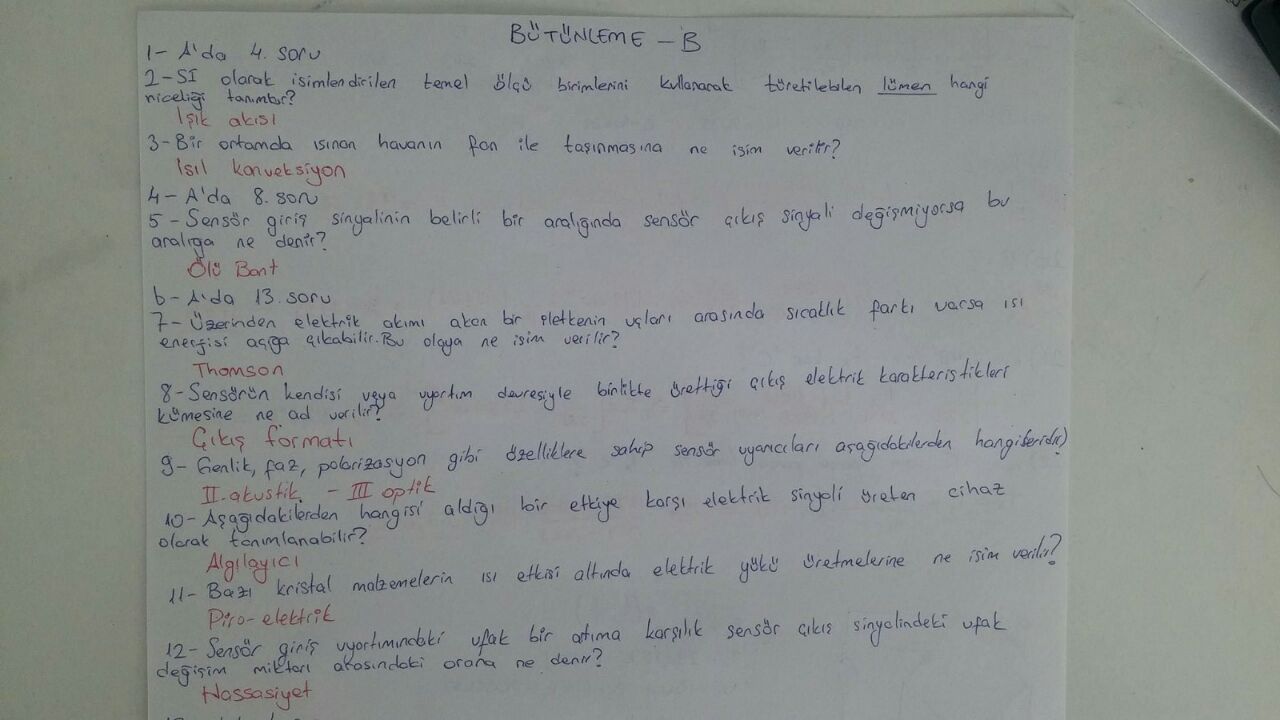 BÜTÜNLEME - B
1- A'da 4. soru
2- SI olarak isimlendirilen temel ölçü birimlerini kullanarak türetilebilen lümen hangi
niceliği tanımlar?
Işık akısı
3- Bir ortamda ısınan havanın fan ile taşınmasına ne isim verilir?
Isıl konveksiyon
4- A'da 8. soru
5- Sensör giriş sinyalinin belirli bir aralığında sensör çıkış sinyali değişmiyorsa bu
aralığa ne denir?
Ölü Bant
6- A'da 13. soru
7- Üzerinden elektrik akımı akan bir iletkenin uçları arasında sıcaklık farkı varsa ısı
energisi açığa çıkabilir. Bu olaya ne isim verilir?
Thomson
8- Sensörün kendisi veya uyartım devresiyle birlikte ürettiği çıkış elektrik karakteristikleri
kümesine ne ad verilir?
Çıkış formatı
9- Genlik, faz, polarizasyon gibi özelliklere sahip sensör uyarıcıları aşağıdakilerden hangileridir?
II. akustik - III optik
10- Aşağıdakilerden hangisi aldığı bir etkiye karşı elektrik sinyali üreten cihaz
olarak tanımlanabilir?
Algılayıcı
11- Bazı kristal malzemelerin ısı etkisi altında elektrik yükü üretmelerine ne isim verilir?
Piro-elektrik
12- Sensör giriş uyartımındaki ufak bir artıma karşılık sensör çıkış sinyalindeki ufak
değişim miktarı arasındaki orana ne denir?
Hassasiyet